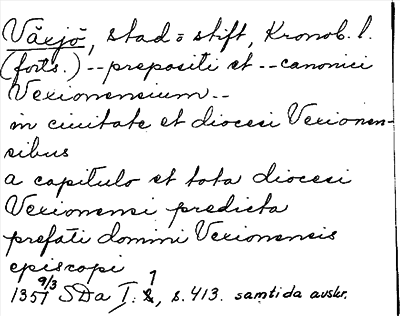 Växjö, stad = stift, Kronob. l.
(forts.) -- prepositi et -- canonici
Vexionensium --
in ciuitate et diocesi Vexionen-
sibus
a capitulo et tota diocesi
Vexionensi predicta
prefati domini Vexionensis
episcopi
1351 9/3 SDa I: 1, s. 413. samtida avskr.